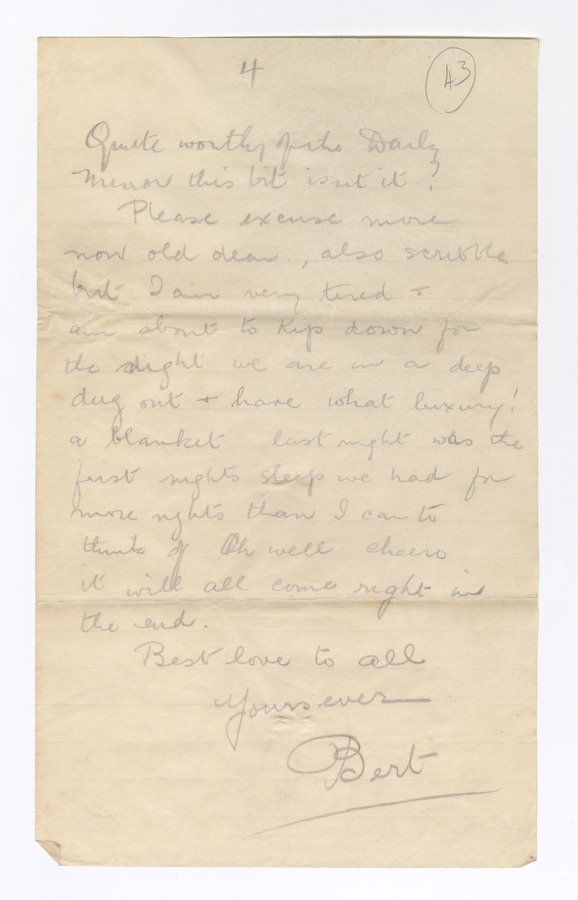 4
A3
Quite worthy of the Daily
Mirror this bit isnt it ?
Please excuse more
now old dear, also scribble
but I am very tired +
am about to kip down for
the night we are in a deep
dug out + have what luxury!
a blanket last night was the
first nights sleep we had for
more nights than I care to
think of Oh well cheero
it will all come right in
the end.
Best love to all
Yours ever
Bert